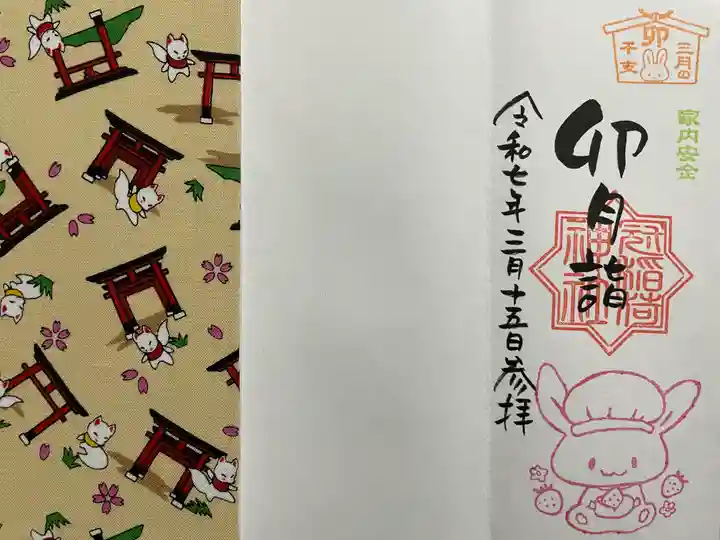 三月の
卯
干支
家内安全
卯月詣
冠稲荷
神社
令和七年三月十五日参拝